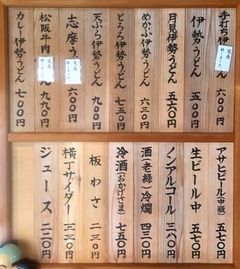 寺打ち伊
六〇〇円
伊勢うどん
五〇〇円
月見伊勢うどん
五五〇円
めかぶ伊勢うどん
六三〇円
とろろ伊勢うどん
七五〇円
天ぷら伊勢うどん
九五〇円
志摩う
六〇〇円
松阪牛肉
九九〇円
カレー伊勢うどん
七〇〇円
アサヒビール(中瓶)
五七〇円
生ビール中
五五〇円
ノンアルコール
三八〇円
酒(老緑)冷燗
四三〇円
冷酒(おかげさま)
七五〇円
板わさ
二三〇円
横丁サイダー
三二〇円
ジュース
二二〇円